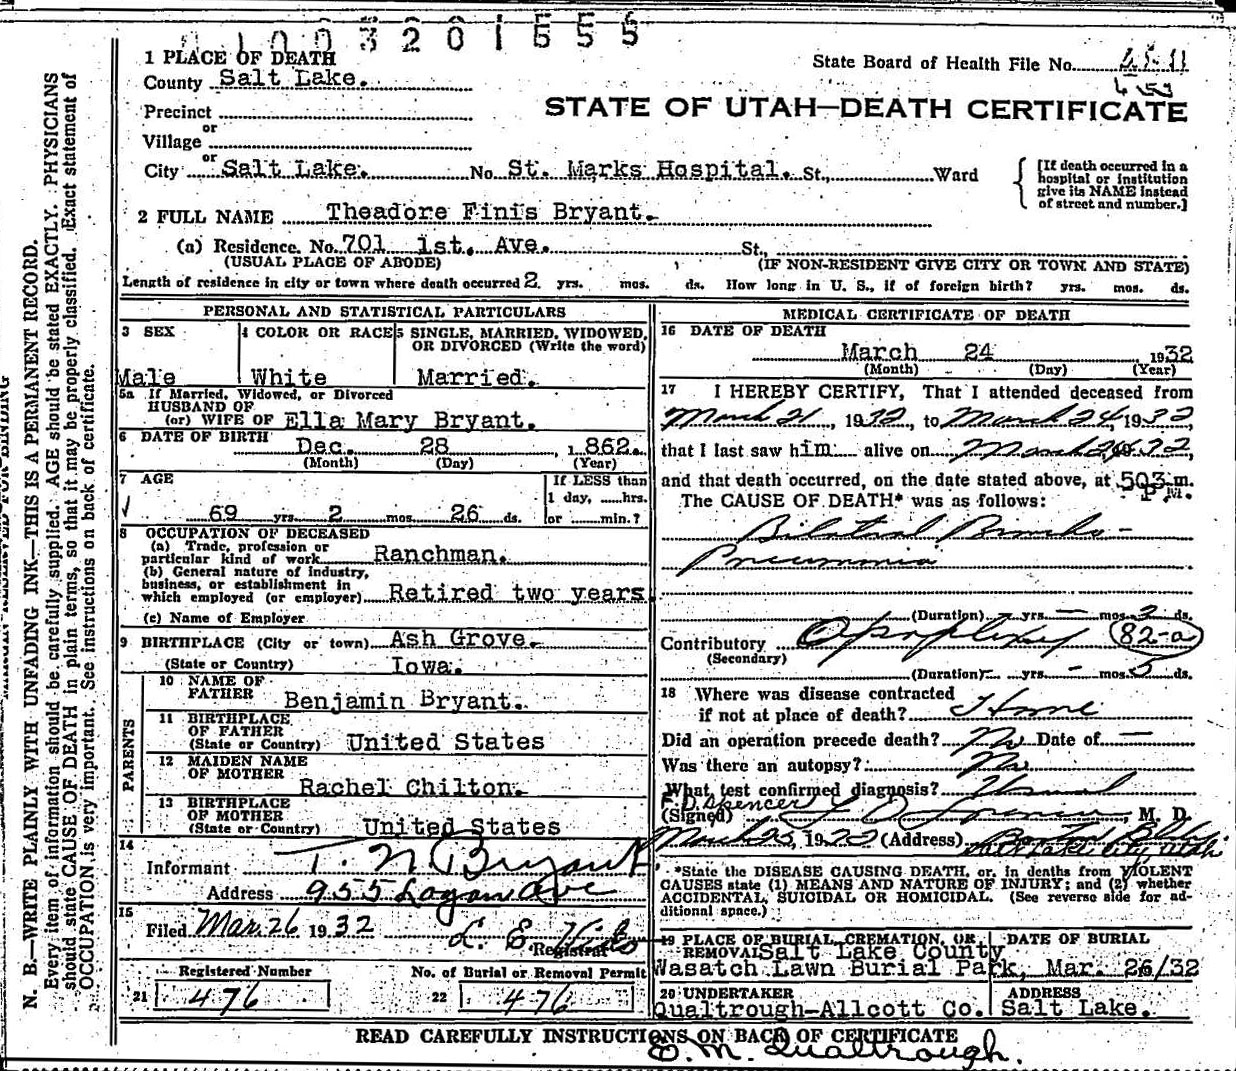 01003201555
1 PLACE OF DEATH
State Board of Health File No.
County Salt Lake.
STATE OF UTAH—DEATH CERTIFICATE
Precinct
or
Village
or
City Salt Lake. No. St. Marks Hospital. St., Ward
[If death occurred in a hospital or institution give its NAME instead of street and number.]
2 FULL NAME Theadore Finis Bryant.
(a) Residence. No. 701 1st. Ave. St.,
(USUAL PLACE OF ABODE) (IF NON-RESIDENT GIVE CITY OR TOWN AND STATE)
Length of residence in city or town where death occurred 2. yrs. mos. ds. How long in U. S., if of foreign birth? yrs. mos. ds.
PERSONAL AND STATISTICAL PARTICULARS
3 SEX 4 COLOR OR RACE 5 SINGLE, MARRIED, WIDOWED,
OR DIVORCED (Write the word)
Male White Married.
5a If Married, Widowed, or Divorced
HUSBAND OF
(or) WIFE OF Ella Mary Bryant.
6 DATE OF BIRTH Dec. 28 , 1862.
(Month) (Day) (Year)
7 AGE If LESS than
1 day, hrs.
69 yrs. 2 mos. 26 ds. or min.?
8 OCCUPATION OF DECEASED
(a) Trade, profession or
particular kind of work Ranchman.
(b) General nature of industry,
business, or establishment in
which employed (or employer) Retired two years
(c) Name of Employer
9 BIRTHPLACE (City or town) Ash Grove.
(State or Country) Iowa.
PARENTS
10 NAME OF
FATHER Benjamin Bryant.
11 BIRTHPLACE
OF FATHER
(State or Country) United States
12 MAIDEN NAME
OF MOTHER
Rachel Chilton.
13 BIRTHPLACE
OF MOTHER
(State or Country) United States
14
Informant T. N. Bryant
Address 955 Logan Ave
15
Filed Mar. 26 1932 L. E.
Registrar
Registered Number No. of Burial or Removal Permit
21 476 22 476
MEDICAL CERTIFICATE OF DEATH
16 DATE OF DEATH
March 24 1932
(Month) (Day) (Year)
17 I HEREBY CERTIFY, That I attended deceased from
March 21, 1932, to March 24, 1932,
that I last saw him alive on March 1932,
and that death occurred, on the date stated above, at 503 m.
P.M.
The CAUSE OF DEATH* was as follows:
Bilateral Broncho-
Pneumonia
(Duration) - yrs. - mos. 3 ds.
Contributory Apoplexy 82-a
(Secondary)
(Duration) - yrs. - mos. 5 ds.
18 Where was disease contracted
if not at place of death? Home
Did an operation precede death? No Date of —
Was there an autopsy? No
What test confirmed diagnosis? Usual
F. D. Spencer
(Signed) F D Spencer, M. D.
March 25, 1932 (Address) Boston Bldg
Salt Lake City, Utah
*State the DISEASE CAUSING DEATH, or, in deaths from VIOLENT
CAUSES state (1) MEANS AND NATURE OF INJURY; and (2) whether
ACCIDENTAL, SUICIDAL OR HOMICIDAL. (See reverse side for ad-
ditional space.)
19 PLACE OF BURIAL, CREMATION, OR DATE OF BURIAL
REMOVAL Salt Lake County
Wasatch Lawn Burial Park, Mar. 26/32
20 UNDERTAKER ADDRESS
Qualtrough-Allcott Co. Salt Lake.
READ CAREFULLY INSTRUCTIONS ON BACK OF CERTIFICATE
E. M. Qualtrough.
N. B.—WRITE PLAINLY WITH UNFADING INK—THIS IS A PERMANENT RECORD.
Every item of information should be carefully supplied. AGE should be stated EXACTLY. PHYSICIANS
should state CAUSE OF DEATH in plain terms, so that it may be properly classified. Exact statement of
OCCUPATION is very important. See instructions on back of certificate.
MARGIN RESERVED FOR BINDING